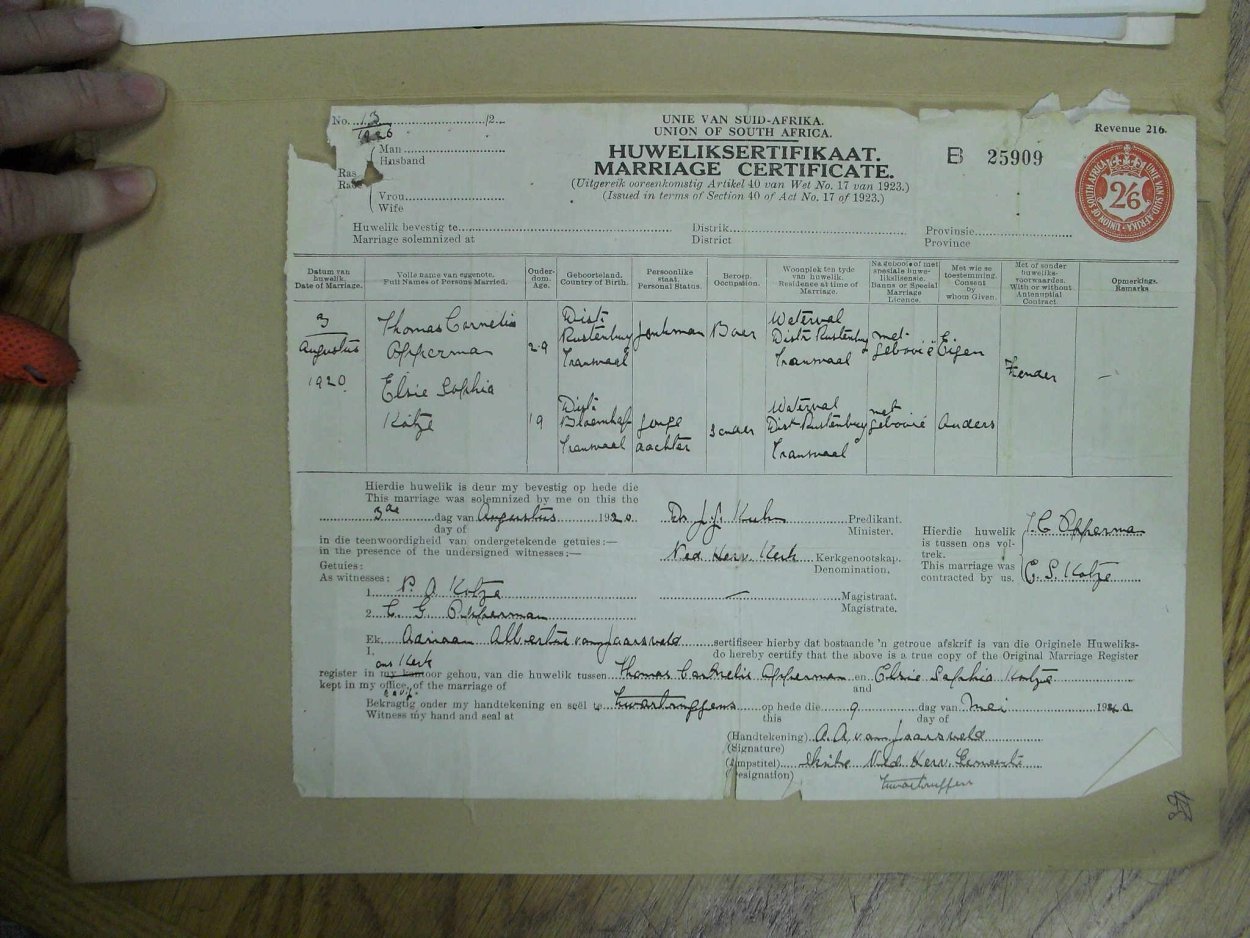 No. 13/1926 /2
UNIE VAN SUID-AFRIKA.
UNION OF SOUTH AFRICA.
Revenue 216.
HUWELIKSERTIFIKAAT.
MARRIAGE CERTIFICATE.
B 25909
(Uitgereik ooreenkomstig Artikel 40 van Wet No. 17 van 1923.)
(Issued in terms of Section 40 of Act No. 17 of 1923.)
UNIE VAN SUID-AFRIKA · UNION OF SOUTH AFRICA
2/6
Man
Husband
Ras
Vrou
Wife
Huwelik bevestig te Distrik Provinsie
Marriage solemnized at District Province
Datum van huwelik. Date of Marriage.
Volle name van eggenote. Full Names of Persons Married.
Ouderdom. Age.
Geboorteland. Country of Birth.
Persoonlike staat. Personal Status.
Beroep. Occupation.
Woonplek ten tyde van huwelik. Residence at time of Marriage.
Na gebooie of met spesiale huwelikslisensie. Banns or Special Marriage Licence.
Met wie se toestemming. Consent by whom Given.
Met of sonder huweliksvoorwaardes. With or without Antenuptial Contract.
Opmerkings. Remarks
3 Augustus 1920
Thomas Cornelis Opperman
29
Distr Rustenburg Transvaal
Jonkman
Boer
Waterval Distr Rustenburg Transvaal
met gebooie
Eigen
Elsie Sophia Kotze
19
Dist. Bloemhof Transvaal
Waterval Dist Rustenburg Transvaal
met gebooie
Anders
Hierdie huwelik is deur my bevestig op hede die
This marriage was solemnized by me on this the
3de dag van Augustus 1920
day of
in die teenwoordigheid van ondergetekende getuies:—
in the presence of the undersigned witnesses:—
Getuies:
As witnesses:
1. P. J. Kotze
2. C. G. Opperman
Predikant.
Minister.
Ned Herv. Kerk Kerkgenootskap.
Denomination.
Magistraat.
Magistrate.
Hierdie huwelik is tussen ons voltrek.
This marriage was contracted by us.
T. C. Opperman
E. S. Kotze
Ek, Adriaan Albertus van Jaarsveld sertifiseer hierby dat bostaande 'n getroue afskrif is van die Originele Huweliks-
I, do hereby certify that the above is a true copy of the Original Marriage Register
ons Kerk
register in my kantoor gehou, van die huwelik tussen Thomas Cornelis Opperman en Elsie Sophia Kotze
kept in my office, of the marriage of and
Bekragtig onder my handtekening en seël te Swartruggens op hede die 9 dag van Mei 1940
Witness my hand and seal at this day of
(Handtekening) A. A. van Jaarsveld
(Signature)
(Ampstitel) Skriba Ned. Herv. Gemeente
(Designation)
Swartruggens